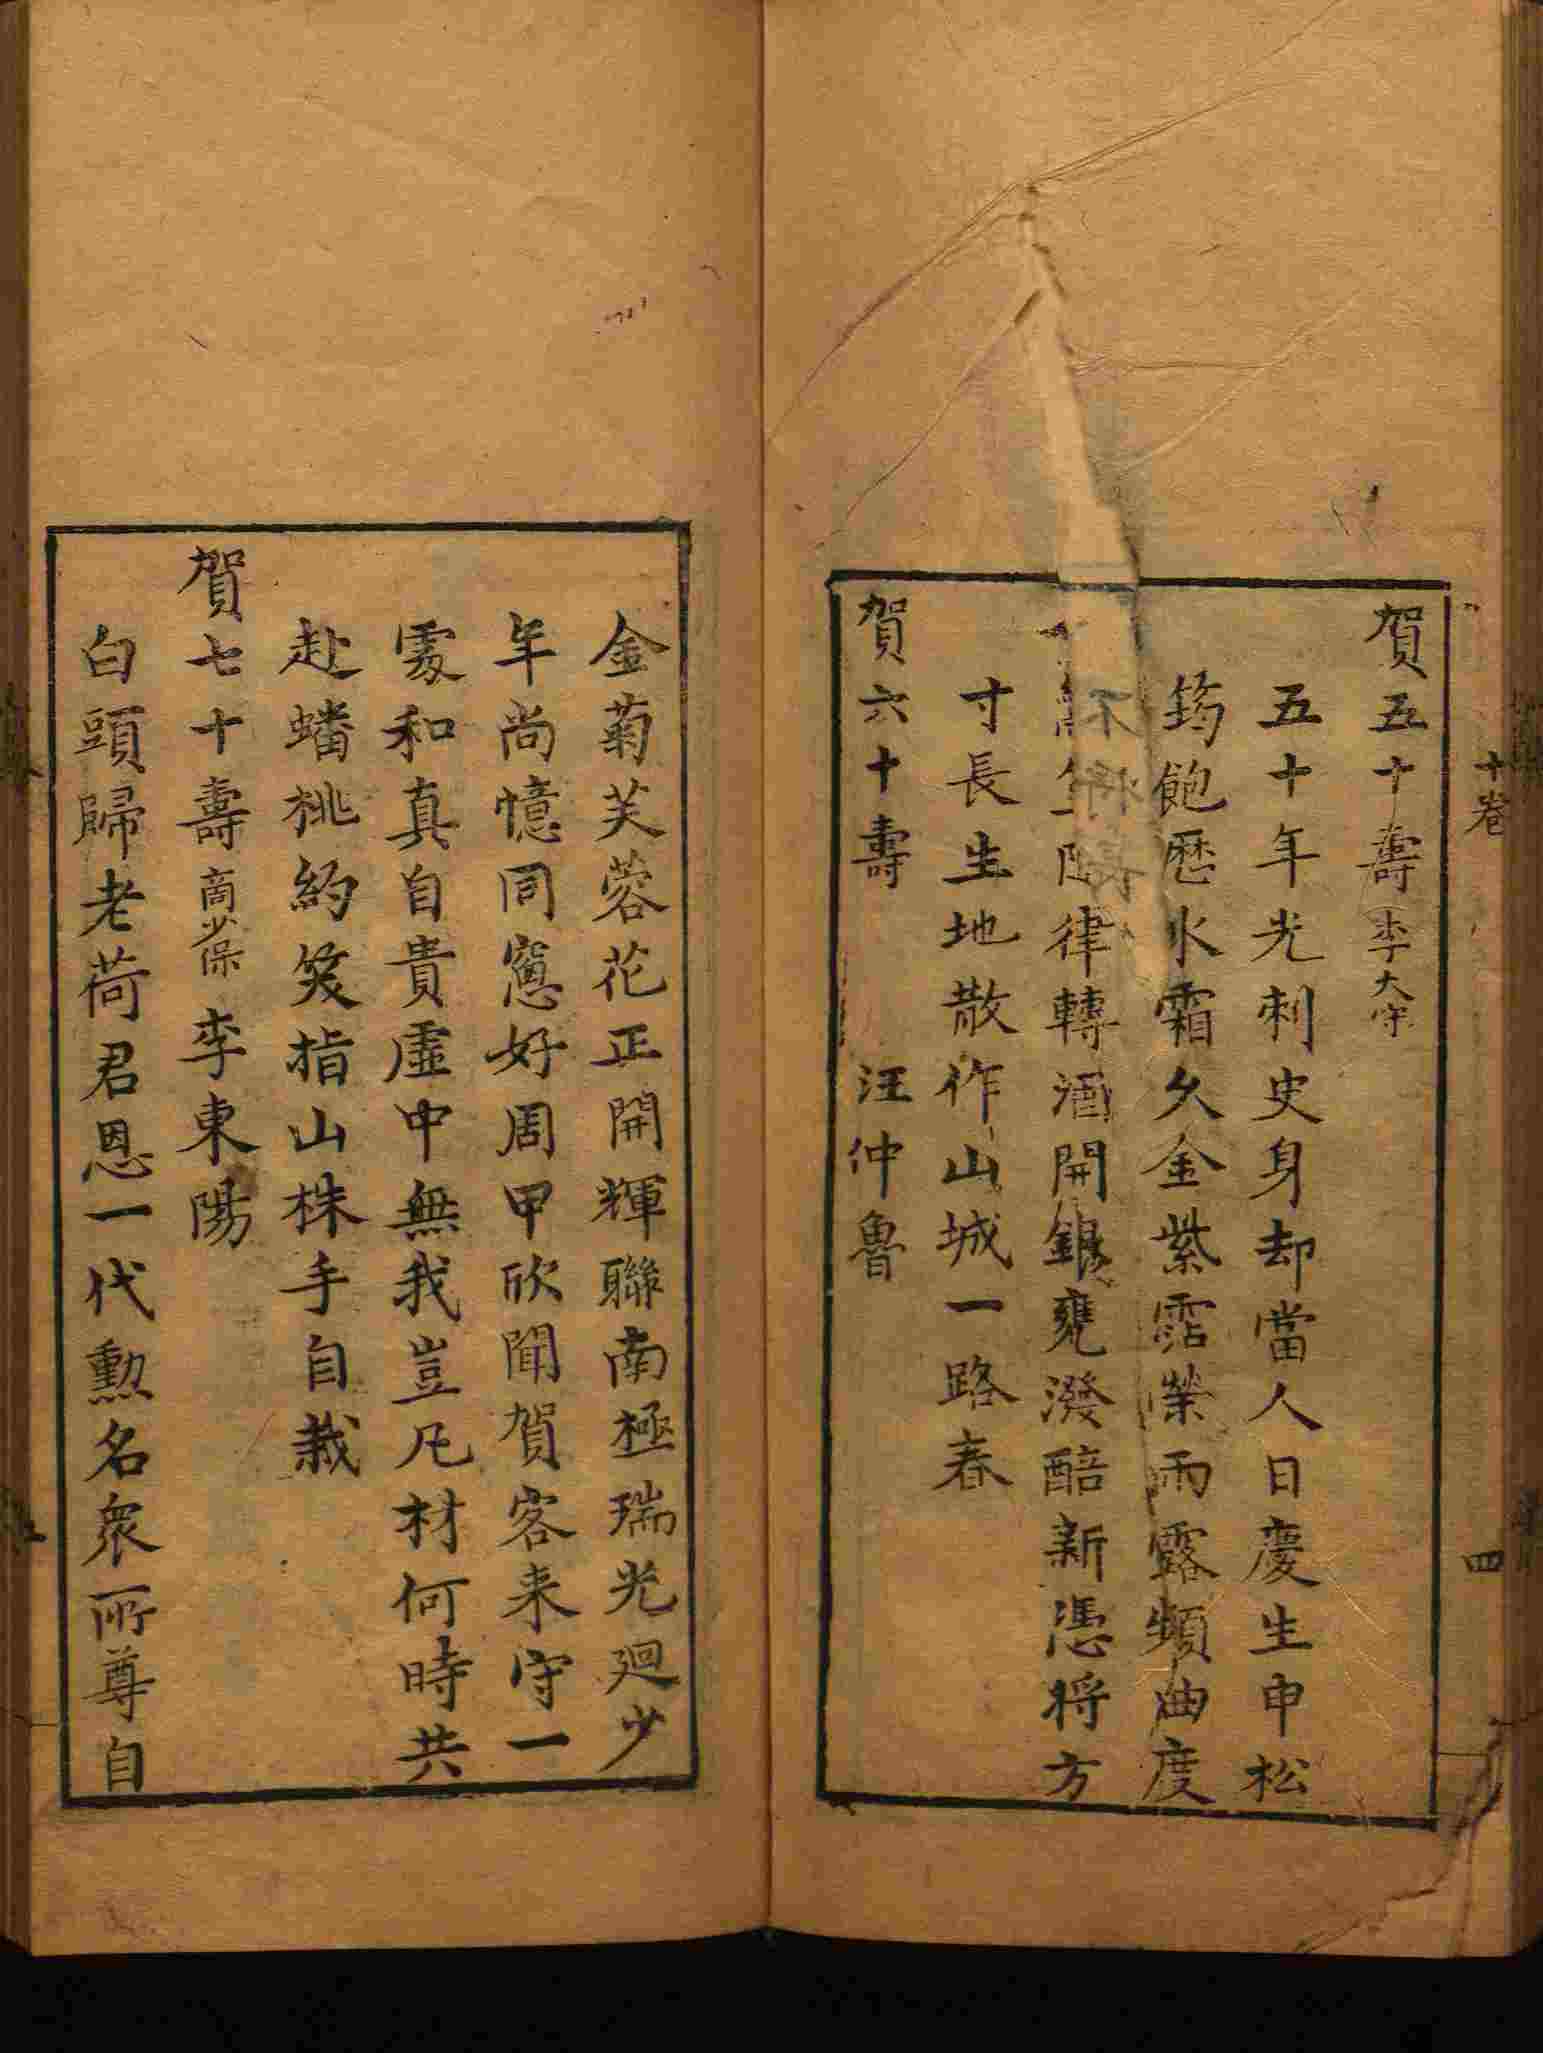 十卷 四
賀五十壽 李大守
五十年光刺史身却當人日慶生申松
筠飽歷氷霜久金紫霑榮雨露頻曲度
律轉酒開銀甕潑醅新憑將方
寸長生地散作山城一路春
賀六十壽 汪仲魯
金菊芙蓉花正開輝聯南極瑞光廻少
年尚憶同窻好周甲欣聞賀客来守一
䖏和真自貴虛中無我豈凡材何時共
赴蟠桃約笑指山株手自栽
賀七十壽 商少保 李東陽
白頭歸老荷君恩一代勲名衆所尊自